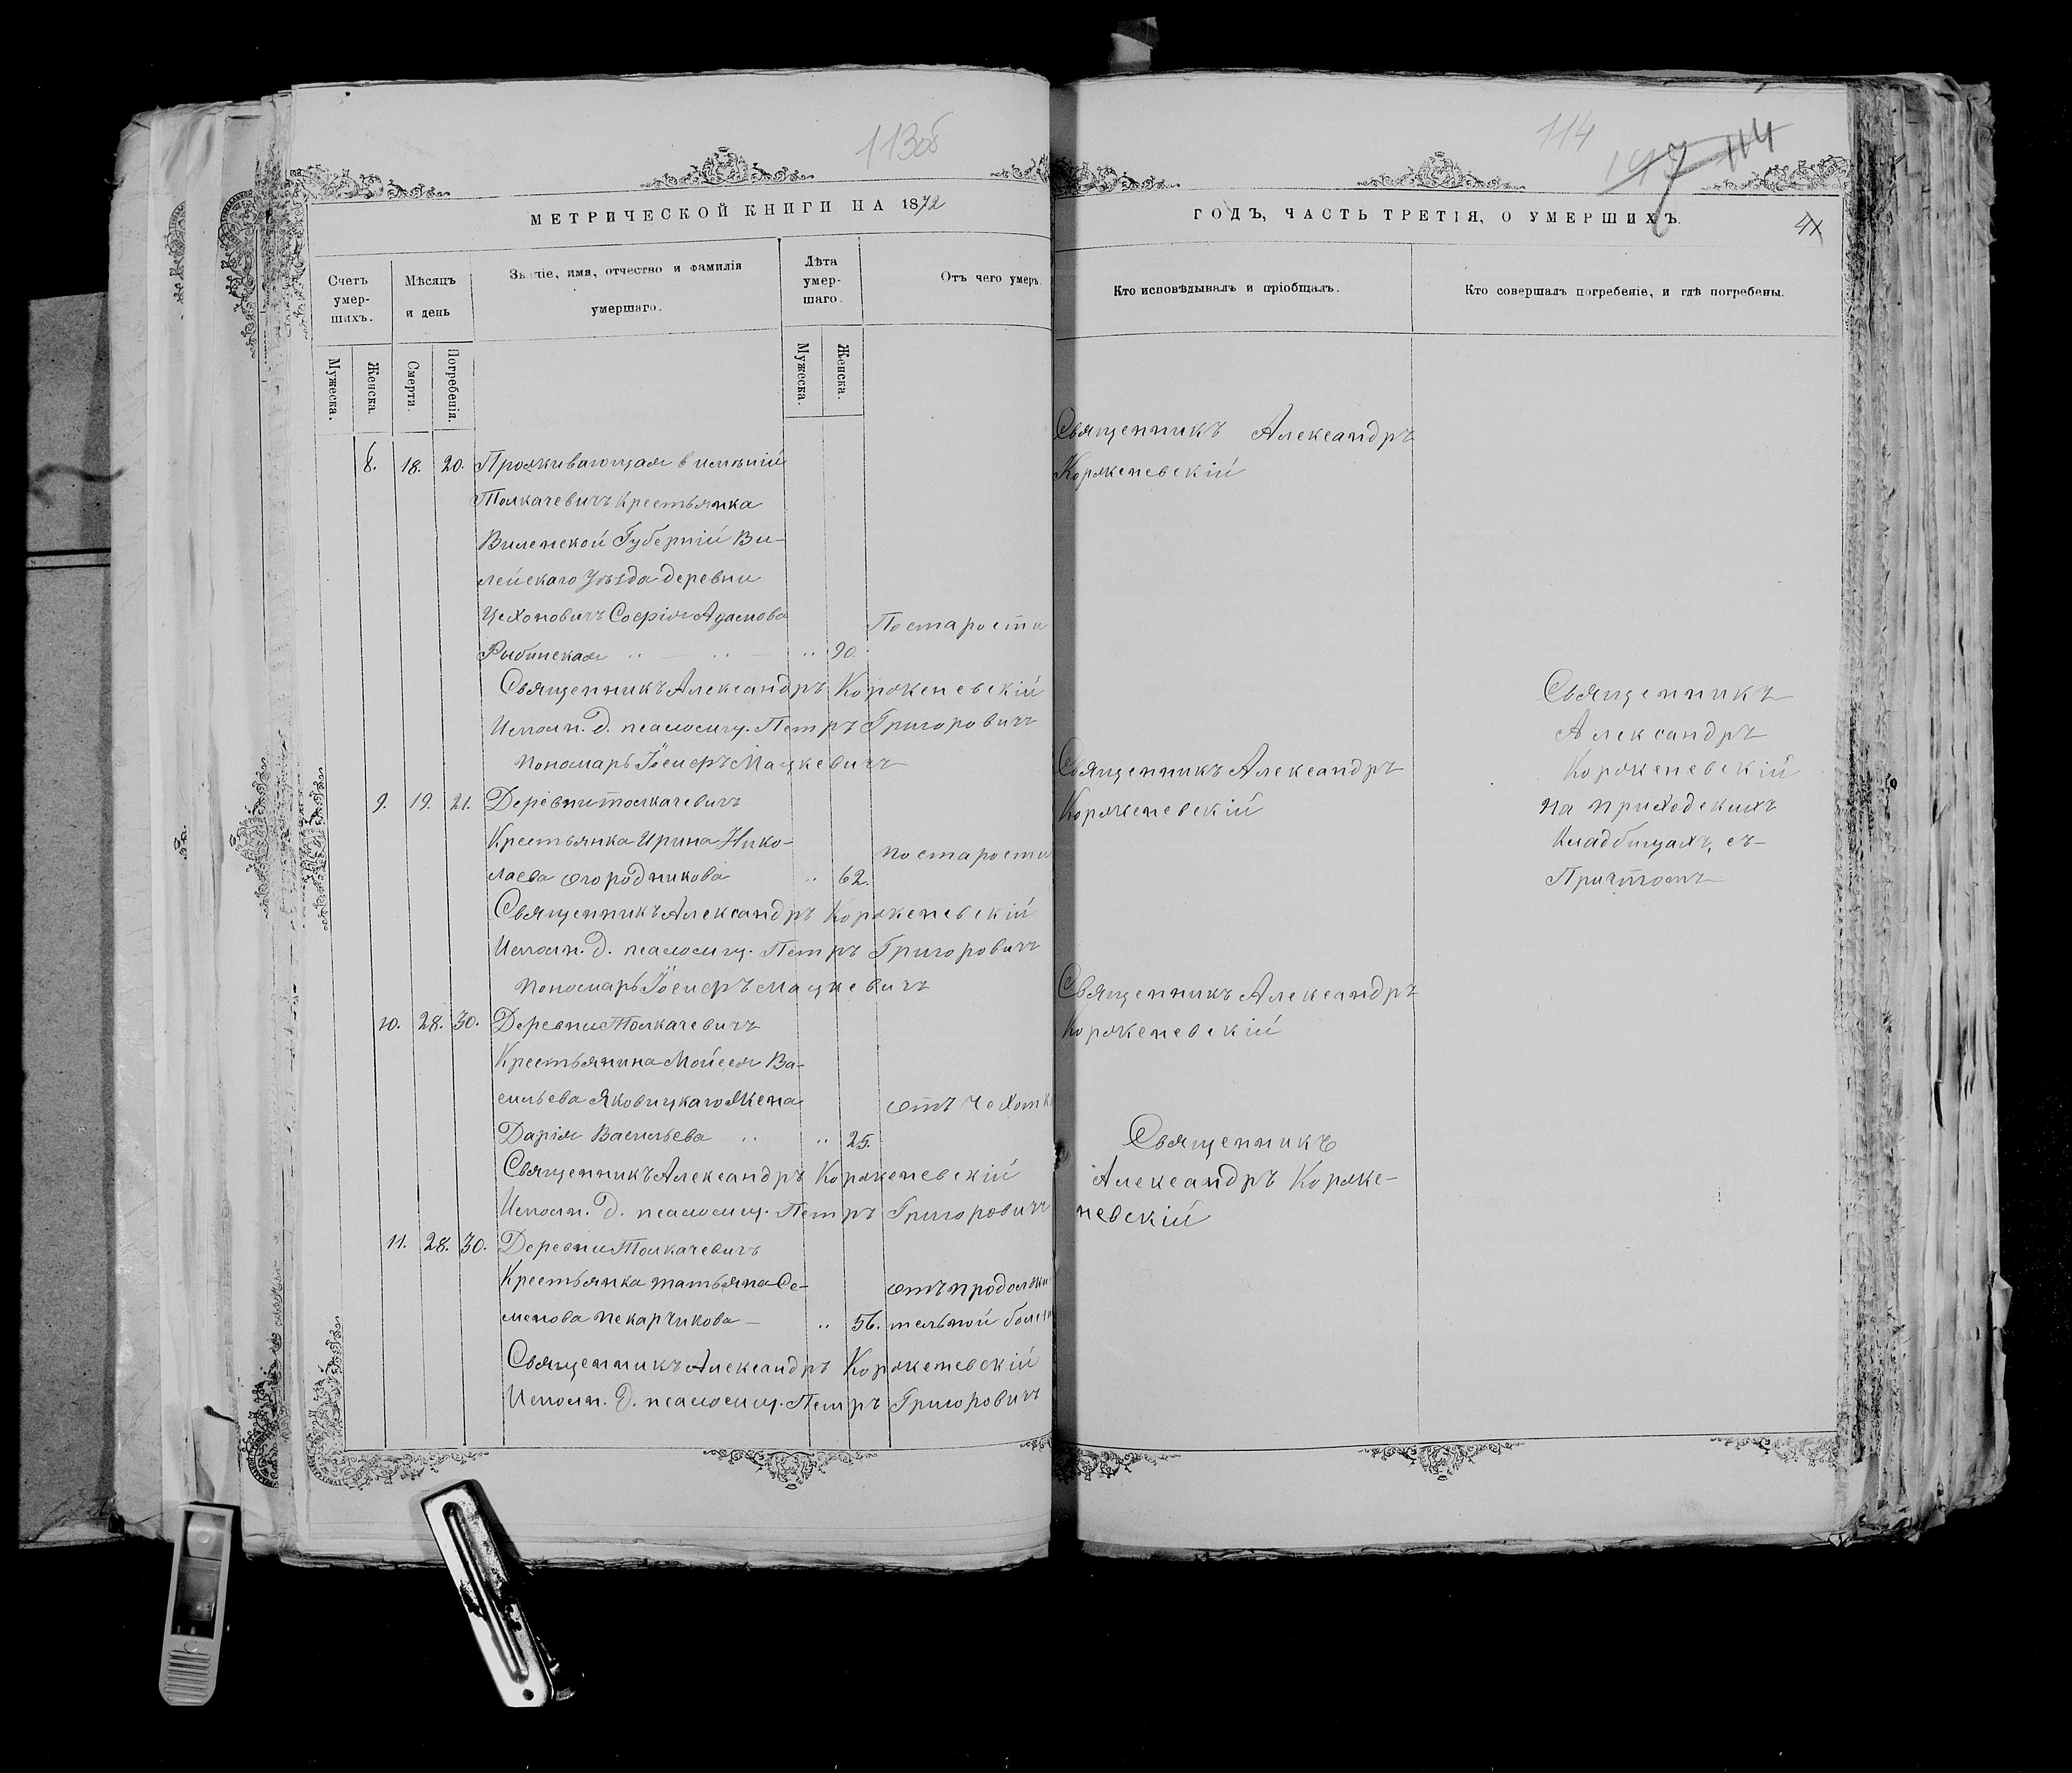 113об
МЕТРИЧЕСКОЙ КНИГИ НА 1872
Счетъ умершихъ.
Мѣсяцъ и день
Званіе, имя, отчество и фамилія умершаго.
Лѣта умершаго.
Отъ чего умеръ.
Мужеска.
Женска.
Смерти.
Погребенія.
Мужеска.
Женска.
8. 18. 20. Проживающая в имѣніи
Толкачевичъ Крестьянка
Виленской Губерніи Ви-
лейскаго Уѣзда деревни
Цехоновичъ Софія Адамова По старости
Рыбинская 90.
Священникъ Александръ Корженевскій
Исполн. д. псаломщ. Петръ Григоровичъ
Пономарь Іосифъ Мацкевичъ
9. 19. 21. Деревни Толкачевичъ
Крестьянка Ирина Нико- По старости
лаева Огородникова 62.
Священникъ Александръ Корженевскій
Исполн. д. псаломщ. Петръ Григоровичъ
Пономарь Іосифъ Мацкевичъ
10. 28. 30. Деревни Толкачевичъ
Крестьянина Мойсея Ва-
сильева Яковицкаго Жена отъ чехотк
Дарія Васильева 25.
Священникъ Александръ Корженевскій
Исполн. д. псаломщ. Петръ Григоровичъ
11. 28. 30. Деревни Толкачевичъ
Крестьянка Татьяна Се- отъ продолжи
менова Пекарчикова 56. тельной болѣзн
Священникъ Александръ Корженевскій
Исполн. д. псаломщ. Петръ Григоровичъ
114
114
ГОДЪ, ЧАСТЬ ТРЕТІЯ, О УМЕРШИХЪ.
Кто исповѣдывалъ и пріобщалъ.
Кто совершалъ погребеніе, и гдѣ погребены.
Священникъ Александръ
Корженевскій
Священникъ Александръ
Корженевскій
Священникъ Александръ
Корженевскій
Священникъ
Александръ Корже-
невскій
Священникъ
Александръ
Корженевскій
на приходскихъ
Кладбищахъ, съ
Причтомъ